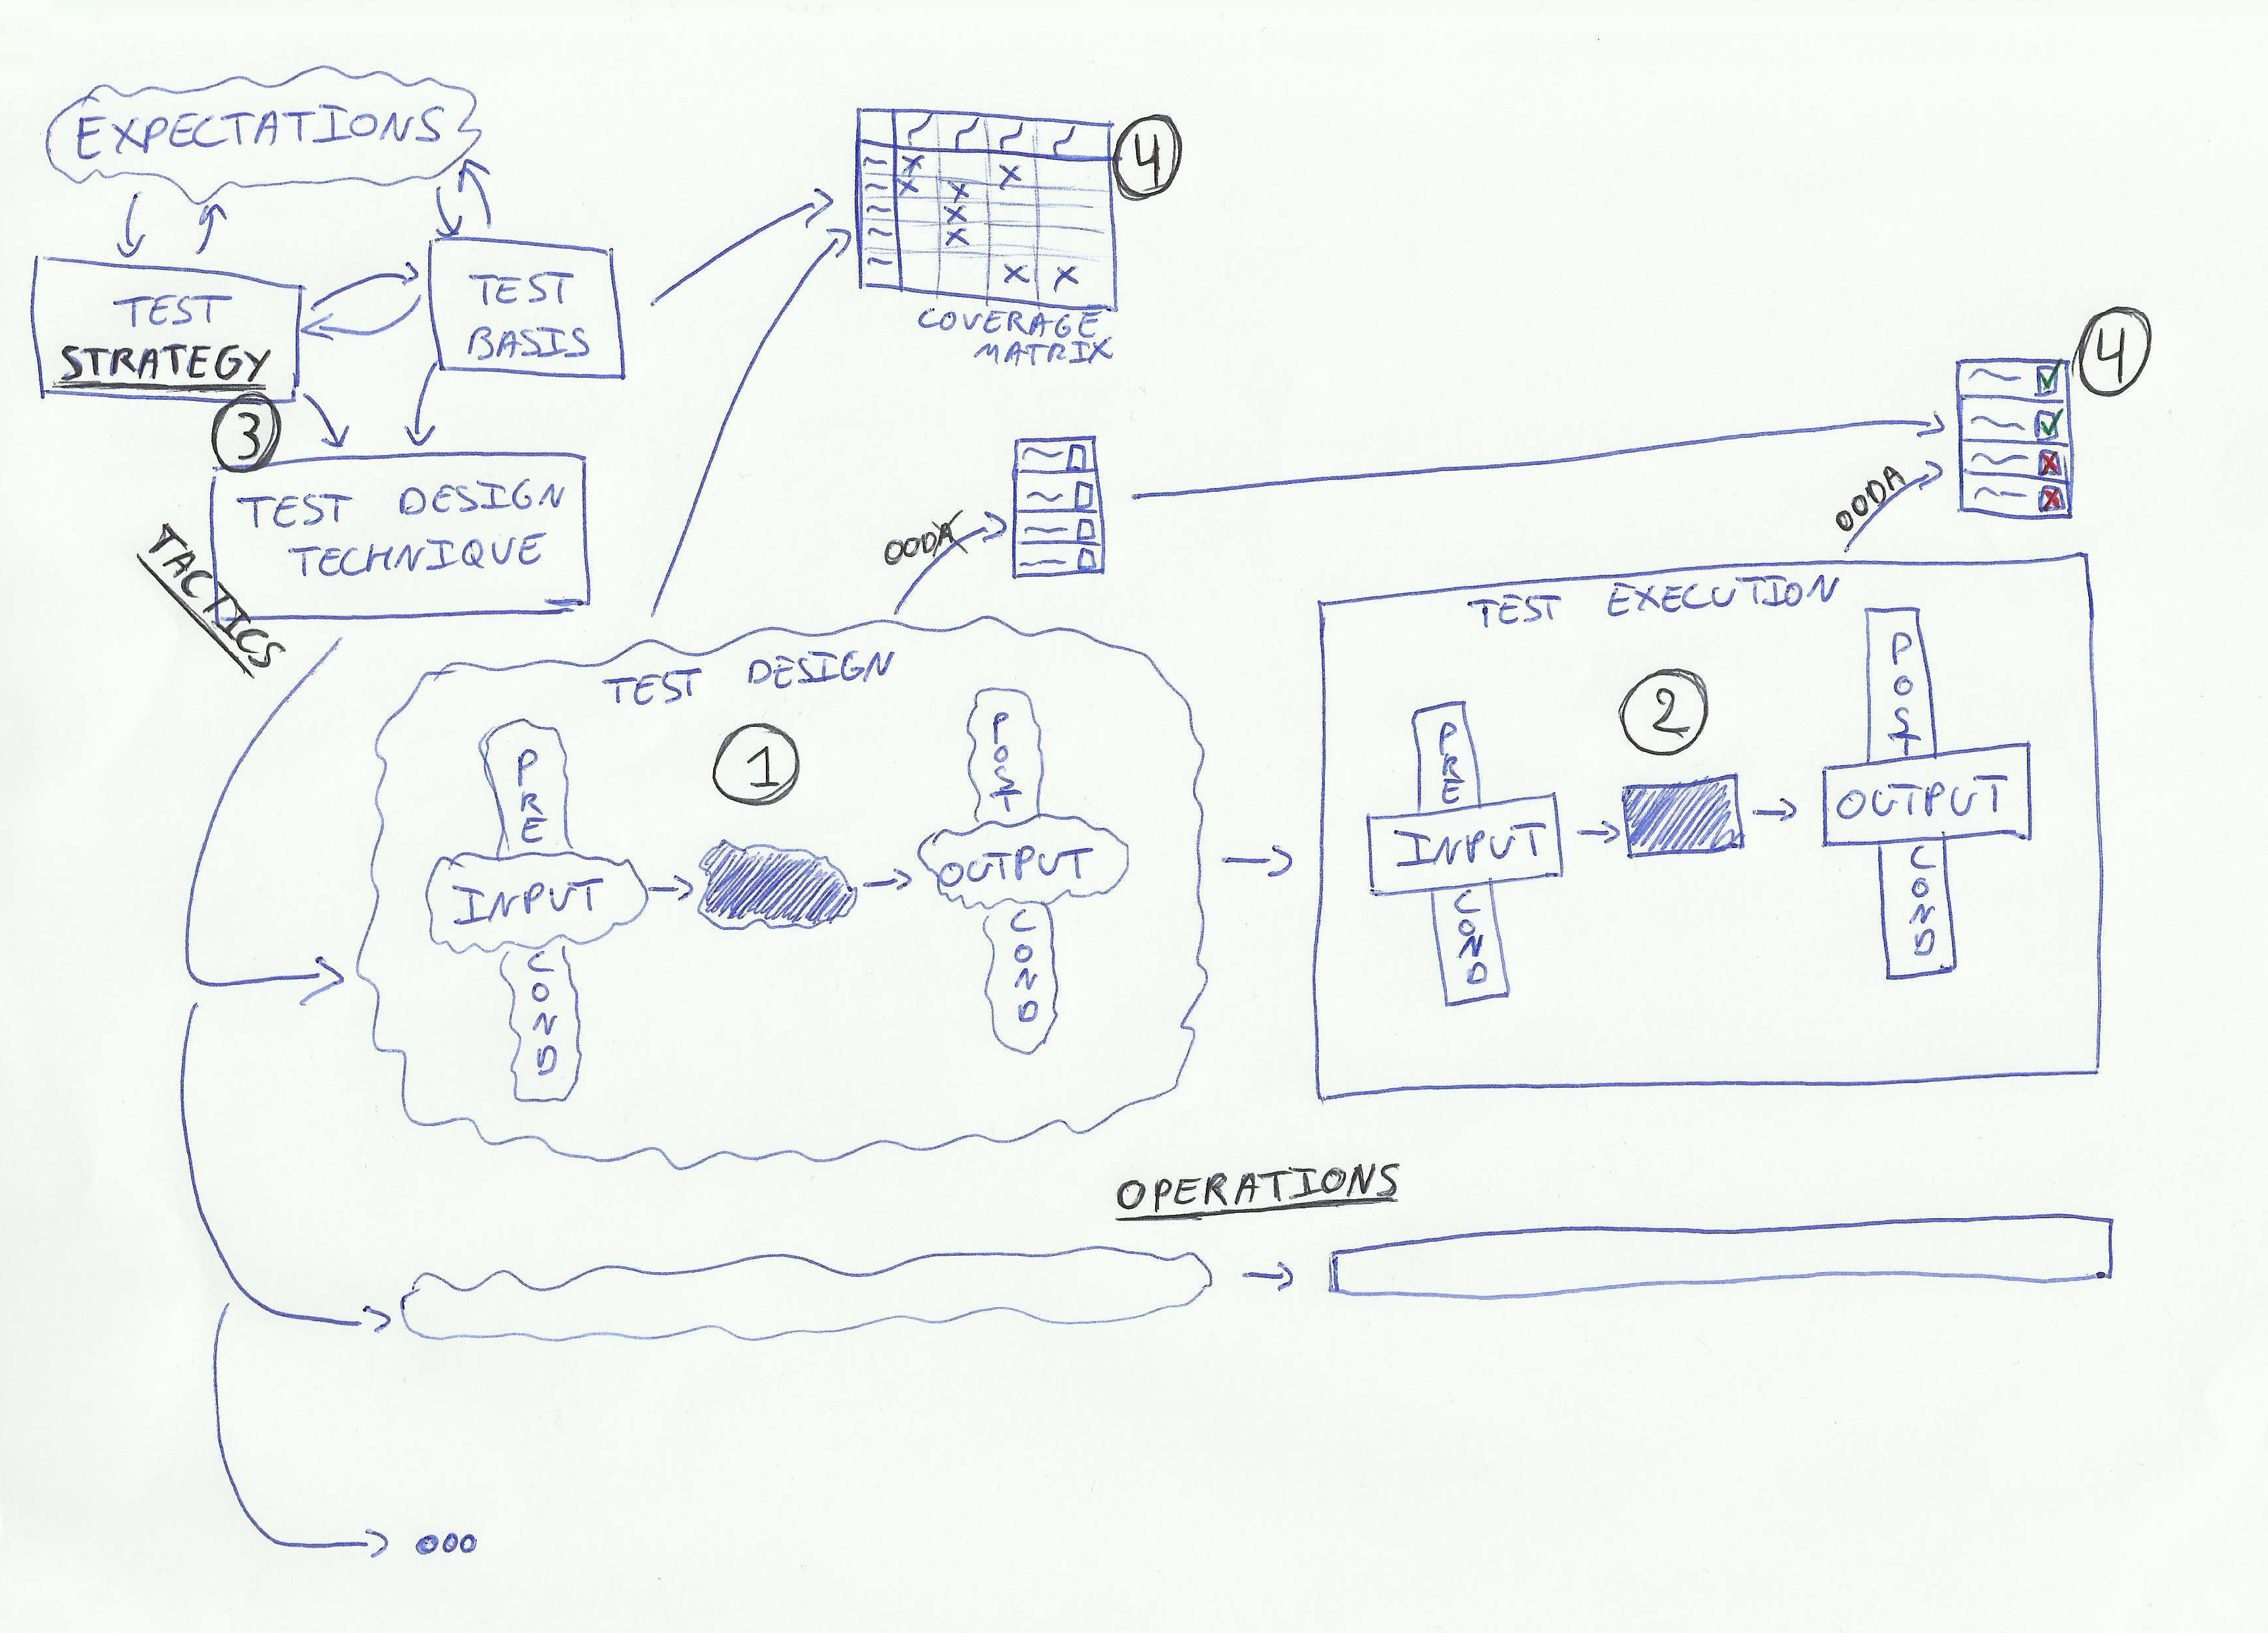 EXPECTATIONS
TEST
STRATEGY
TEST
BASIS
3
TEST DESIGN
TECHNIQUE
TACTICS
COVERAGE
MATRIX
4
OODA
OODA
4
TEST DESIGN
1
PRE
INPUT
COND
POST
OUTPUT
COND
TEST EXECUTION
2
PRE
INPUT
COND
POST
OUTPUT
COND
OPERATIONS
ooo